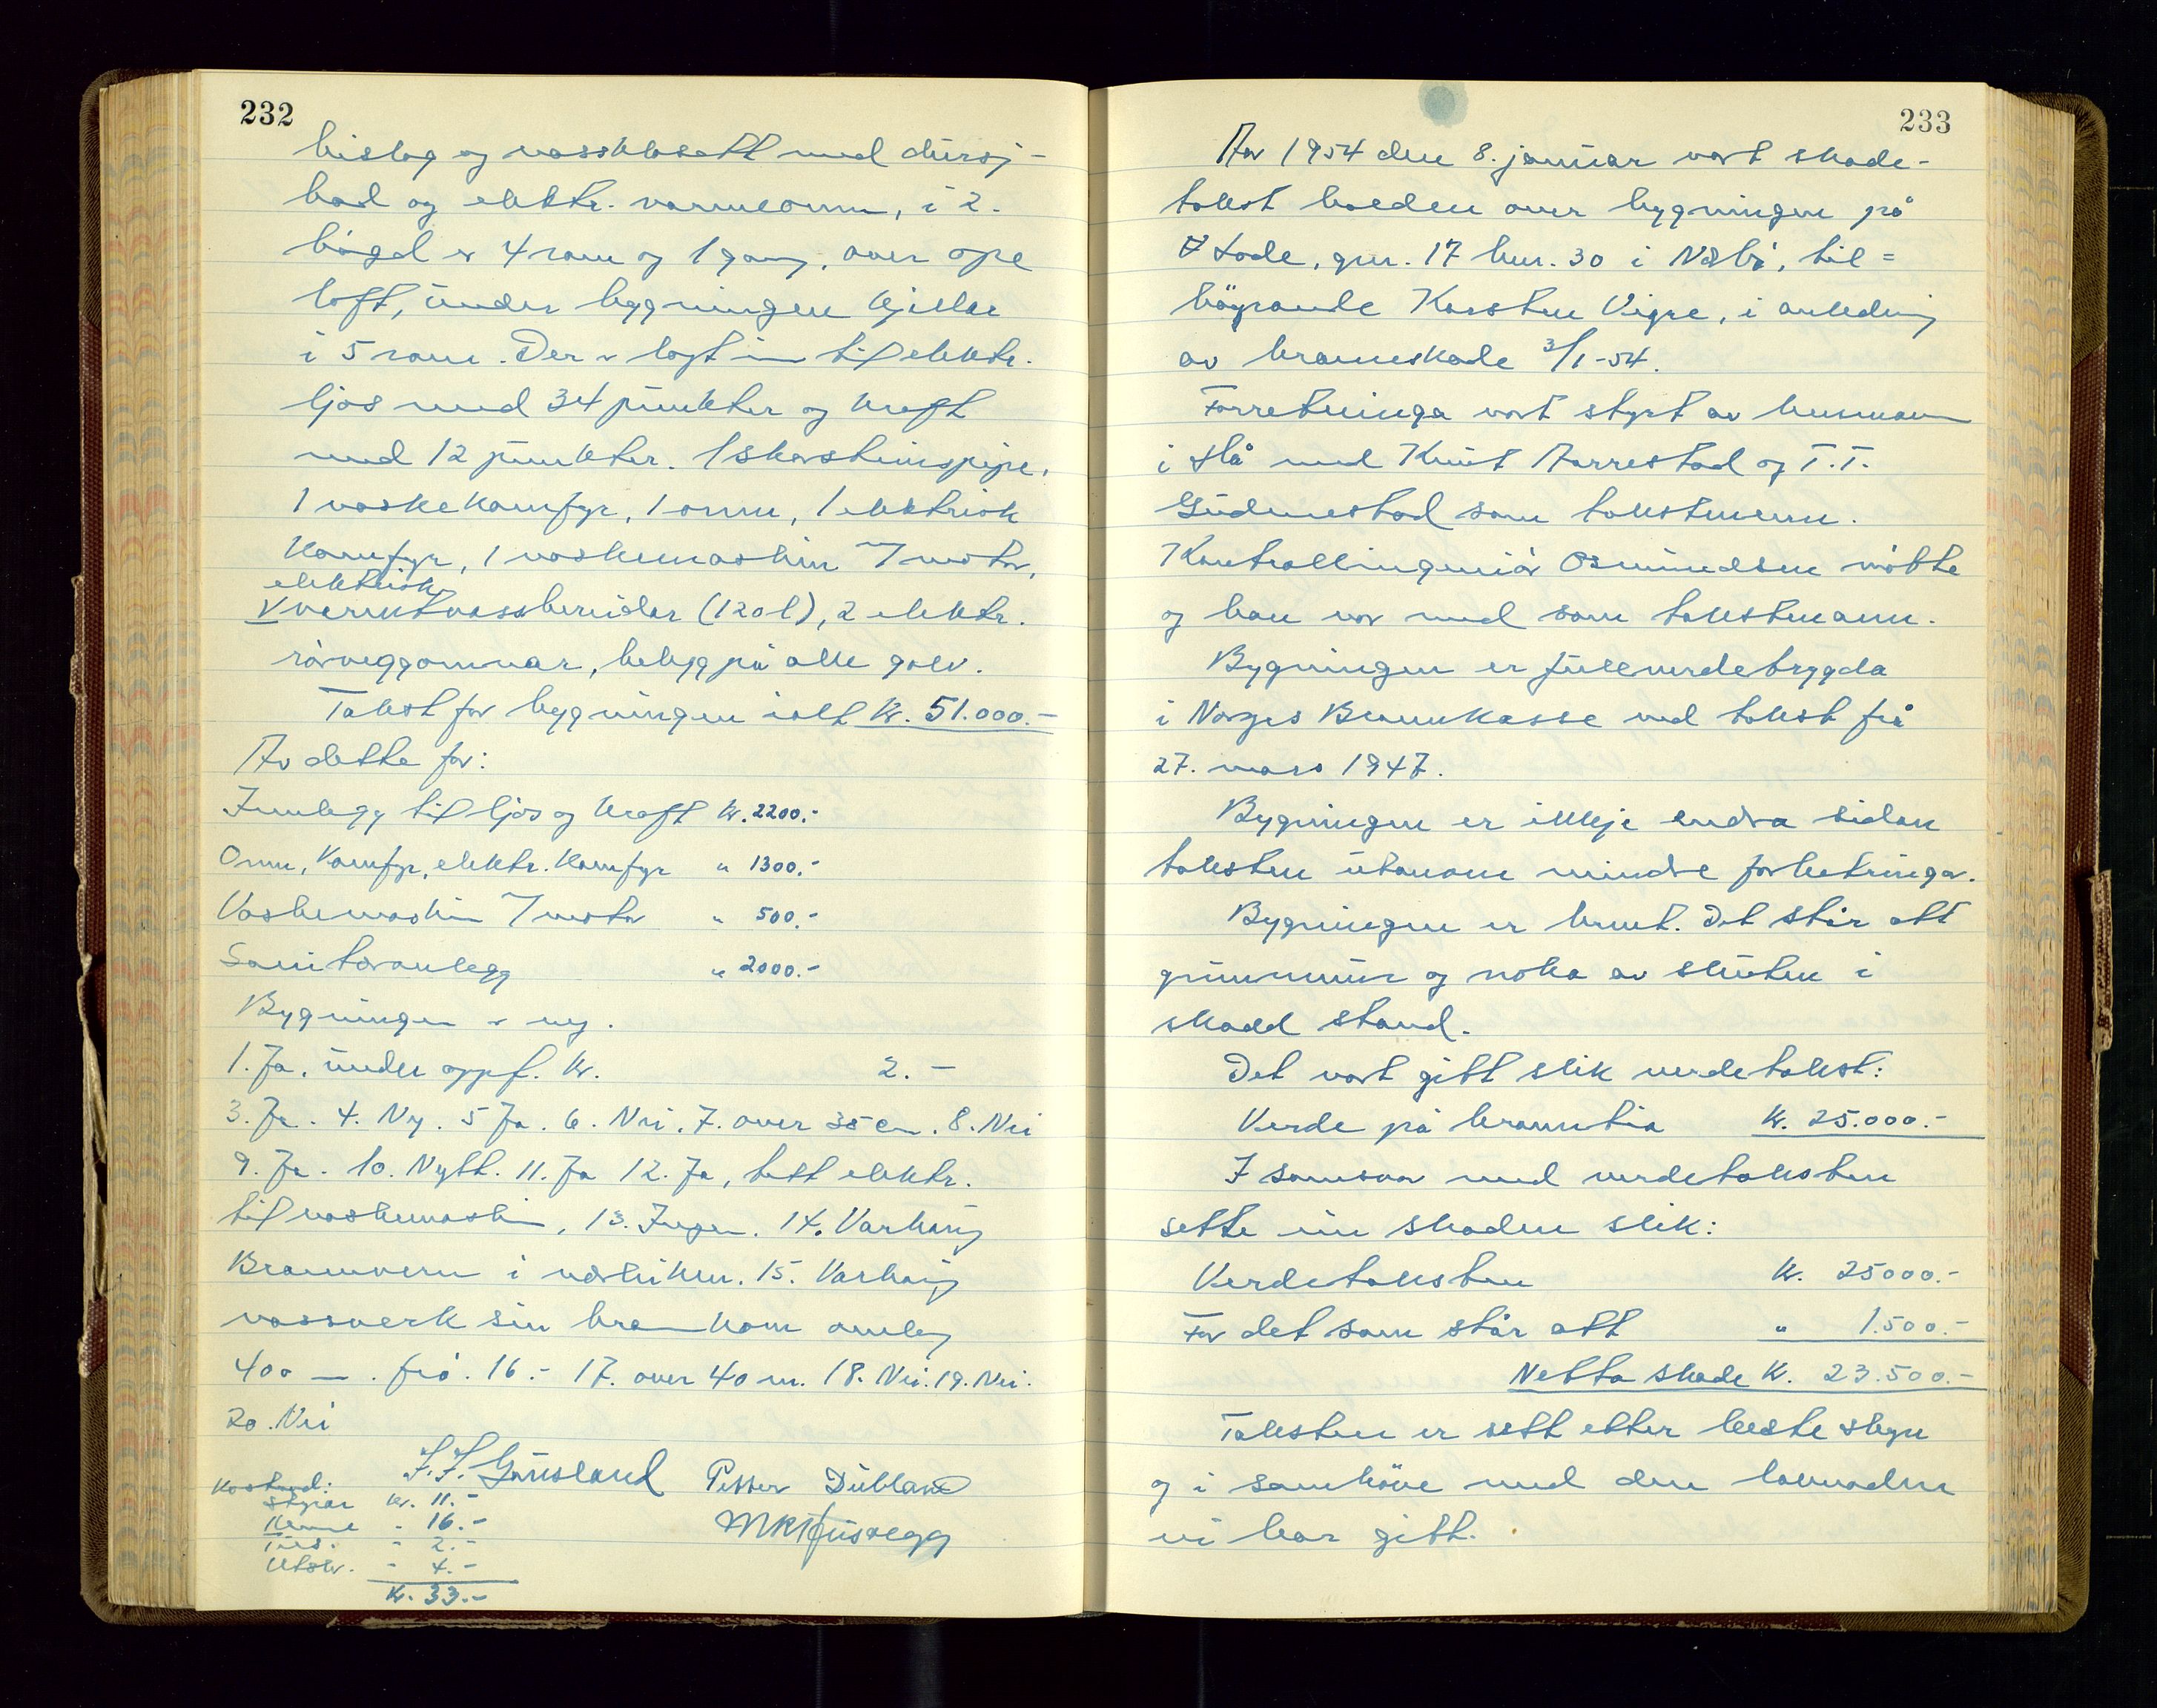 232
bislag og vassklosett med dusj-
bad og elektr. varmeomn, i 2.
høgd er 4 rom og 1 gang, over ope
loft, under bygningen kjellar
i 5 rom. Der er lagt inn til elektr.
ljos med 34 punkter og kraft
med 12 punkter. 1 skorsteinspipe,
1 vaskekomfyr, 1 omn, 1 elektrisk
Komfyr, 1 vaskemaskin 7 motor,
elektrisk
V varmtvassbereidar (120 l), 2 elektr.
rørveggomnar, belegg på alle golv.
Takst for bygningen ialt kr. 51.000.-
Av dette for:
Innlegg til ljos og kraft kr. 2200.-
Omn, Komfyr, elektr. Komfyr " 1300.-
Vaskemaskin 7 motor " 500.-
Sanitæranlegg " 2000.-
Bygningen er ny.
1. Ja, under oppf. kr. 2.-
3. Ja. 4. Ny. 5 Ja. 6. Nei. 7. over 35 cm. 8. Nei
9. Ja. 10. Nytt. 11. Ja 12. Ja, tett elektr.
til vaskemaskin, 13. Ingen. 14. Varhaug
Brannvern i nærleiken. 15. Varhaug
vassverk sin brannkum omlag
400 m. frå. 16.- 17. over 40 m. 18. Nei. 19. Nei.
20. Nei
Kostnad:
Styrar kr. 11.-
Menn - 16.-
- 2.-
Utskr. - 4.-
Kr. 33.-
Petter Dubland
233
Aar 1954 den 8. januar vart skade-
takst halden over bygningen på
Lode, gnr. 17 bnr. 30 i Nærbø, til=
høyrande Karsten Vigre, i anledning
av branneskade 3/1-54.
Forretninga vart styrt av lensmann
i Hå med Knut Aarrestad og T. T.
Gudmestad som takstmenn.
Kontrollingeniør Osmundsen møtte
og han var med som takstmann.
Bygningen er fullverdetrygda
i Norges Brannkasse med takst frå
27. mars 1947.
Bygningen er ikkje endra sidan
taksten utanom mindre forbetringar.
Bygningen er brent. Det står att
grunnmur og noko av skuten i
skadd stand.
Det vart gitt slik verdetakst:
Verde på branntia Kr. 25.000.-
I samsvar med verdetaksten
sette ein skaden slik:
Verdetaksten Kr. 25000.-
For det som står att " 1.500.-
Netto skade K. 23.500.-
Taksten er sett etter beste skyn
og i samhøve med den lovnaden
vi har gitt.